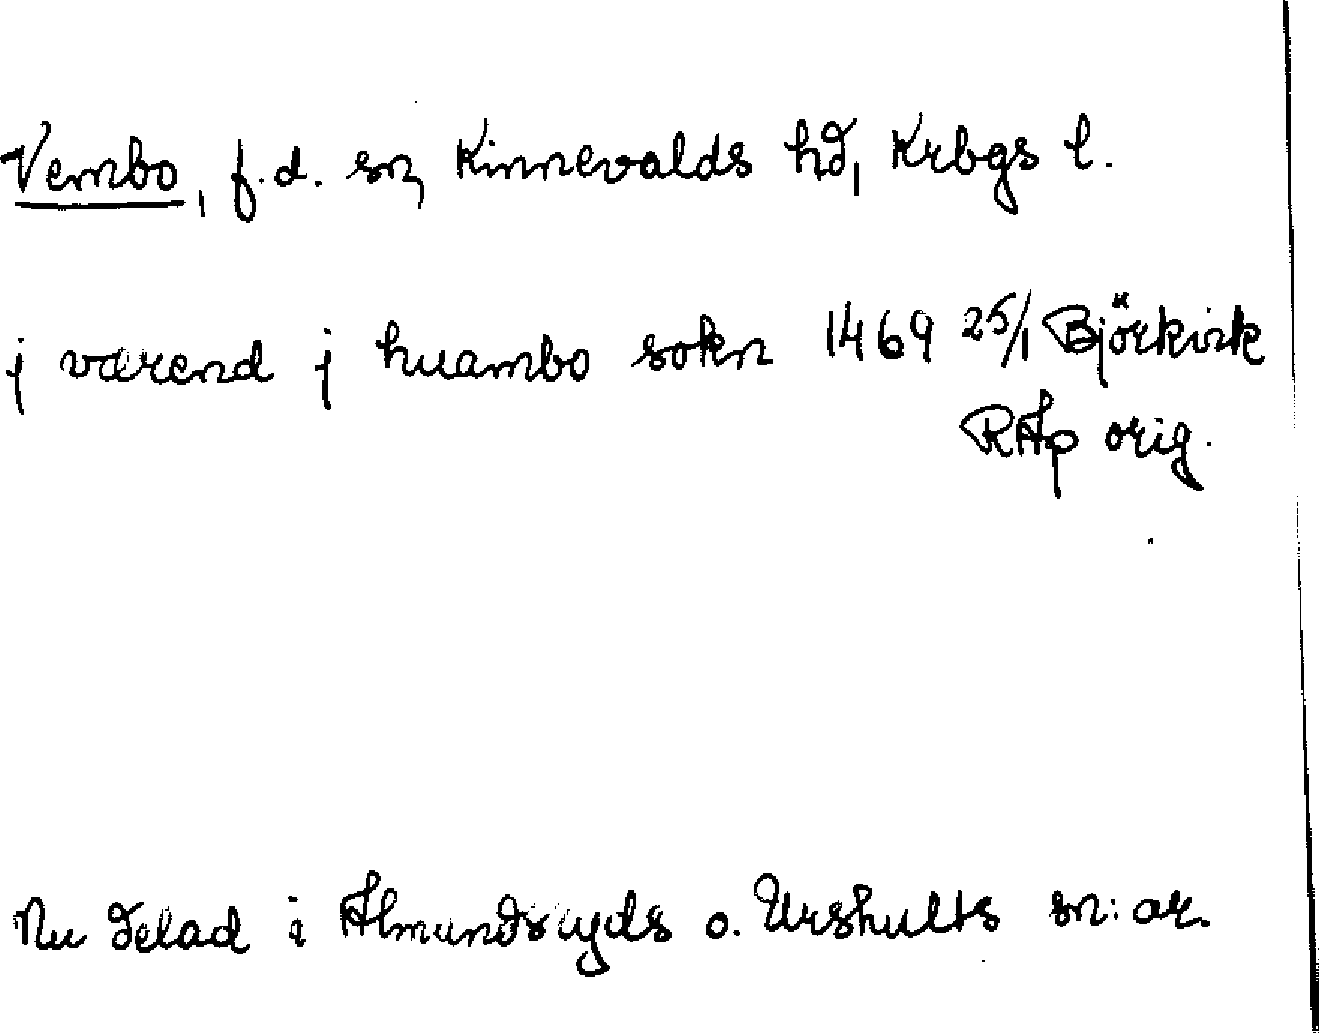 Vembo, f.d. sn, Kinnevalds hd, Krbgs l.
jværend j huambo sokn 1469 25/1 Björkvik
RAp orig.
Nu delad i Almundsryds o. Urshults sn:ar.